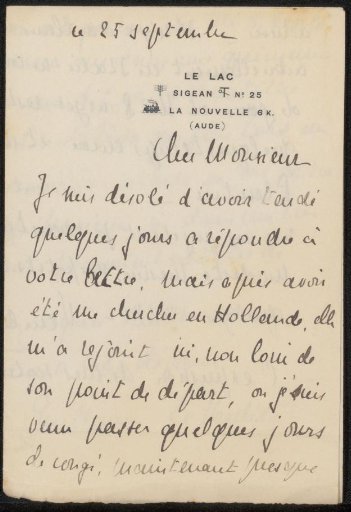 ce 25 septembre
LE LAC
SIGEAN N° 25
LA NOUVELLE 6 K.
(AUDE)
Cher Monsieur
Je suis désolé d'avoir tardé
quelques jours a répondre à
votre lettre, mais après avoir
été me chercher en Hollande, elle
m'a rejoint ici, non loin de
son point de départ, où je suis
venu passer quelques jours
de congé, maintenant presque